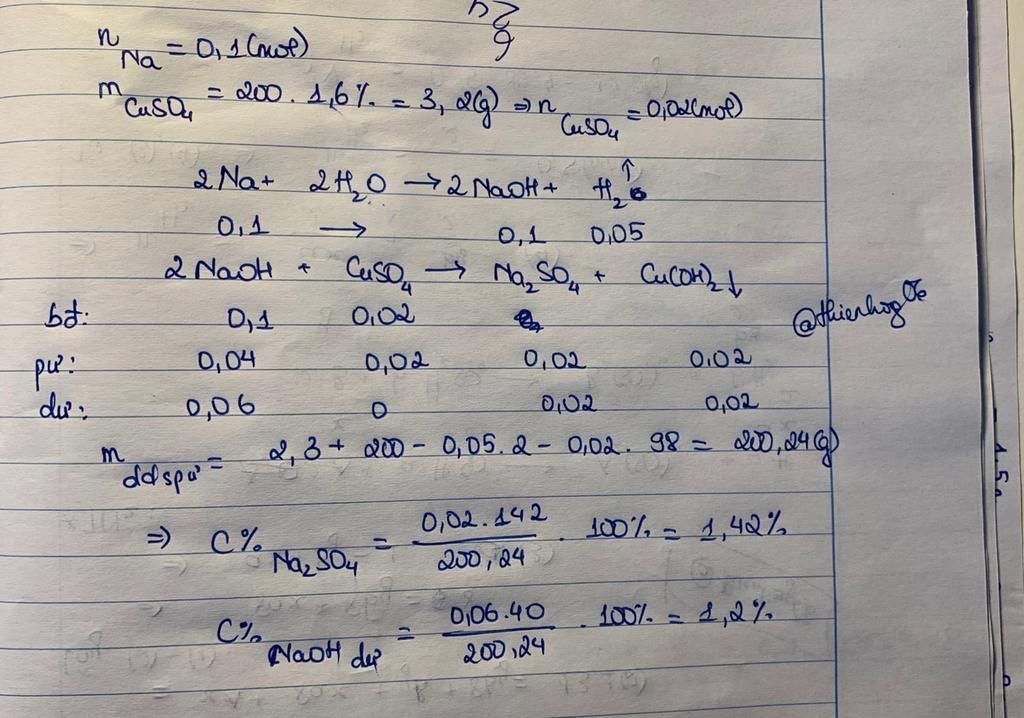 n Na = 0,1 (mol)
m CuSO₄ = 200 . 1,6% = 3,2(g) ⇒ n CuSO₄ = 0,02(mol)
2Na + 2H₂O → 2NaOH + H₂↑
0,1 → 0,1 0,05
2NaOH + CuSO₄ → Na₂SO₄ + Cu(OH)₂↓
bđ: 0,1 0,02
@thienhog06
pư: 0,04 0,02 0,02 0.02
dư: 0,06 0 0,02 0,02
m ddspư = 2,3 + 200 - 0,05.2 - 0,02. 98 = 200,24(g)
⇒ C% Na₂SO₄ = 0,02.142 / 200,24 . 100% = 1,42%
C% NaOH dư = 0,06.40 / 200,24 . 100% = 1,2%